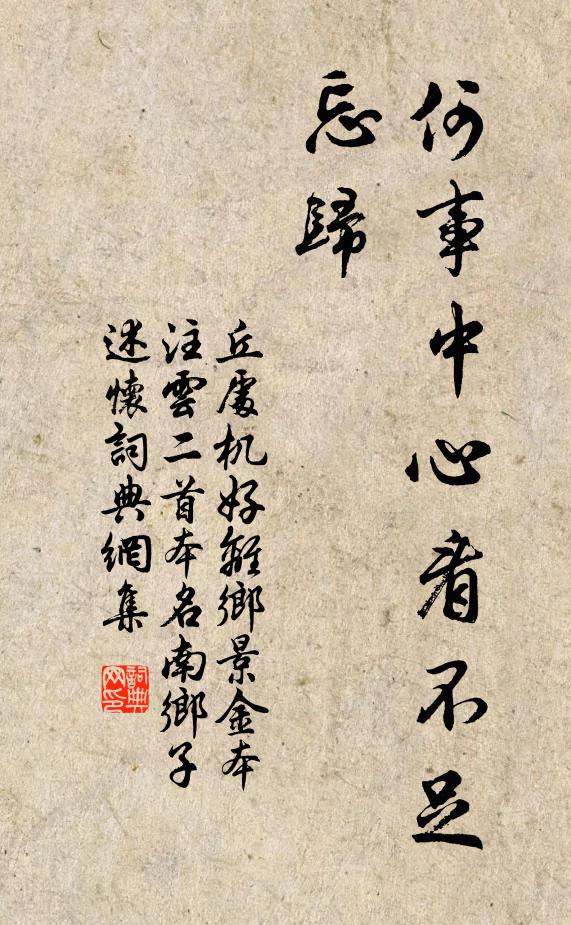 何事中心看不足
忘歸
丘處机好離鄉景金本
注雲二首本名南鄉子
述懷詞典網集
詞典网印